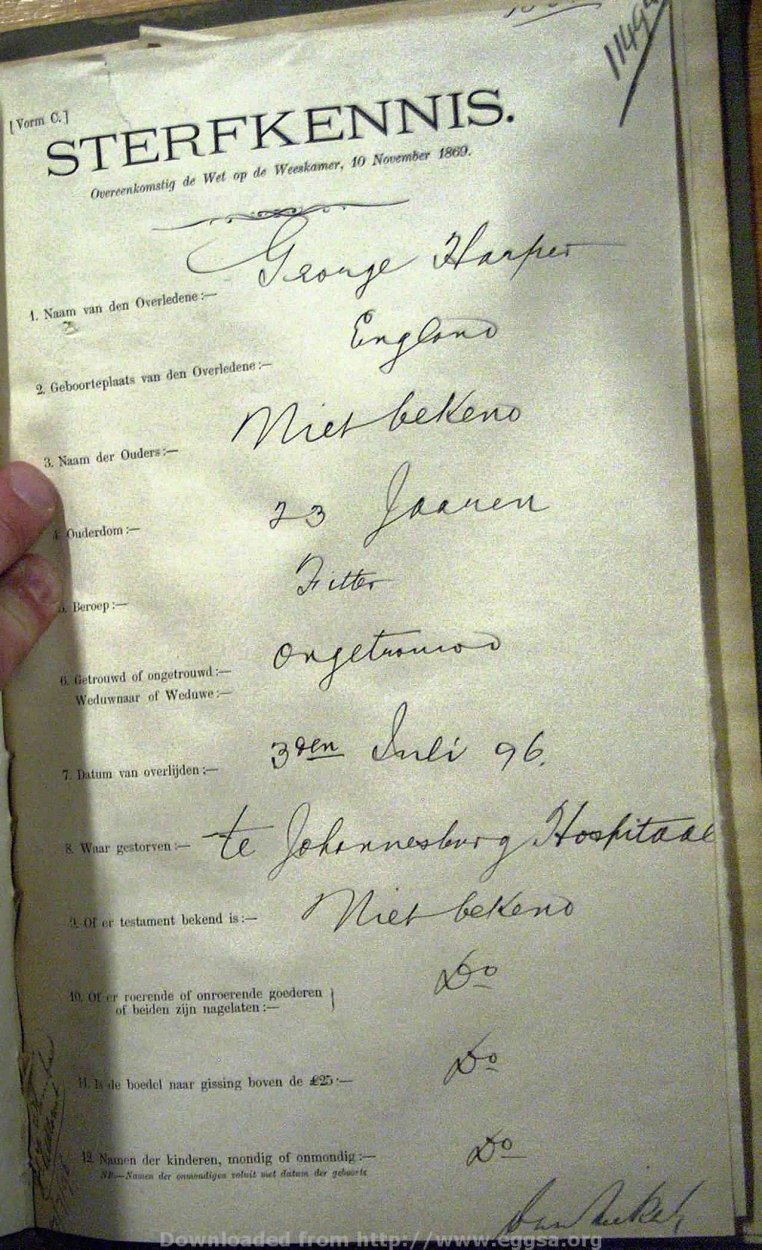 11494
[Vorm C.]
STERFKENNIS.
Overeenkomstig de Wet op de Weeskamer, 10 November 1869.
George Harper
1. Naam van den Overledene :—
England
2. Geboorteplaats van den Overledene :—
Niet bekend
3. Naam der Ouders :—
23 Jaaren
4. Ouderdom :—
Fitter
5. Beroep :—
ongetrouwd
6. Getrouwd of ongetrouwd :—
Weduwnaar of Weduwe :—
3den Juli 96.
7. Datum van overlijden :—
te Johannesburg Hospitaal
8. Waar gestorven :—
Niet bekend
9. Of er testament bekend is :—
Do
10. Of er roerende of onroerende goederen
of beiden zijn nagelaten :—
Do
11. Is de boedel naar gissing boven de £25 :—
Do
12. Namen der kinderen, mondig of onmondig :—
NB.—Namen der onmondigen voluit met datum der geboorte
Downloaded from http://www.eggsa.org